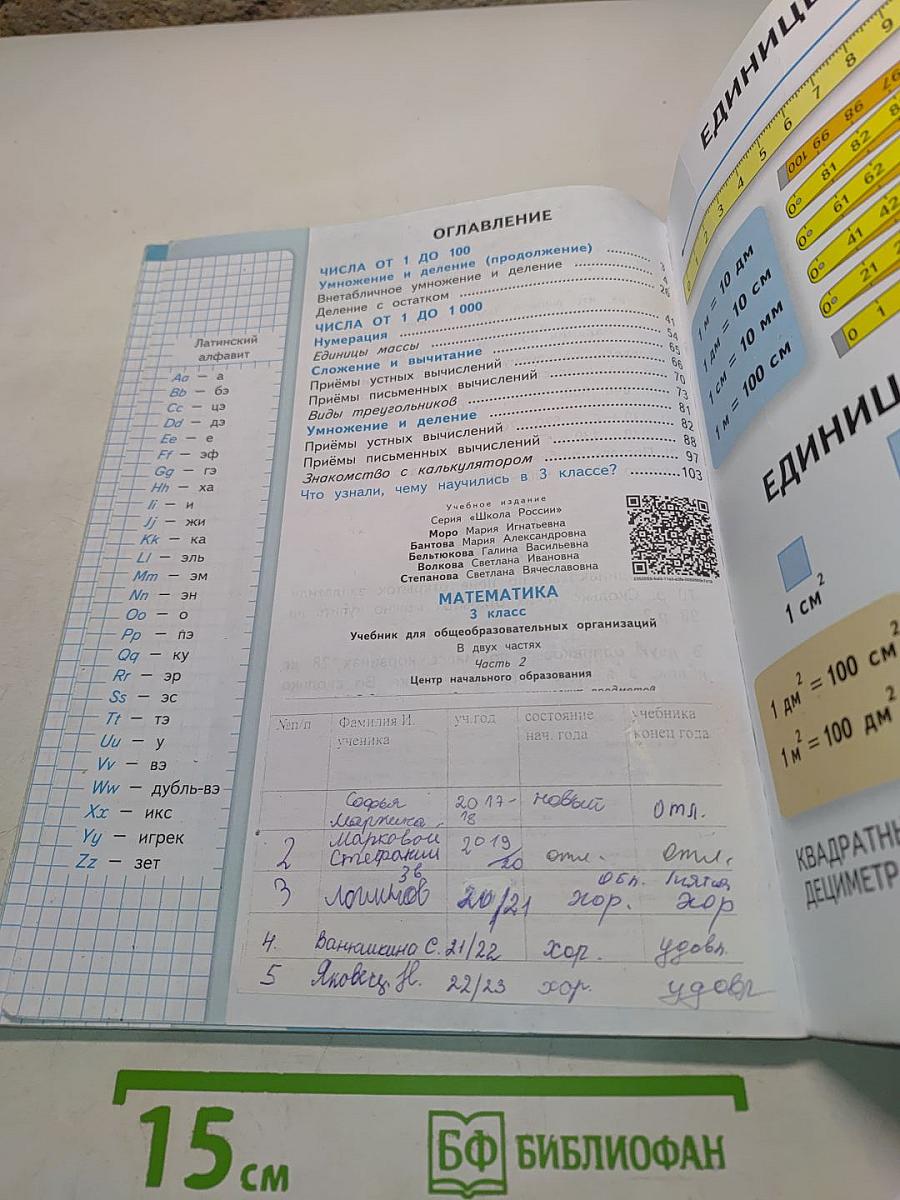 Латинский
алфавит
Aa — а
Bb — бэ
Cc — цэ
Dd — дэ
Ee — е
Ff — эф
Gg — гэ
Hh — ха
Ii — и
Jj — жи
Kk — ка
Ll — эль
Mm — эм
Nn — эн
Oo — о
Pp — пэ
Qq — ку
Rr — эр
Ss — эс
Tt — тэ
Uu — у
Vv — вэ
Ww — дубль-вэ
Xx — икс
Yy — игрек
Zz — зет
ОГЛАВЛЕНИЕ
ЧИСЛА ОТ 1 ДО 100
Умножение и деление (продолжение) 3
Внетабличное умножение и деление 4
Деление с остатком 26
ЧИСЛА ОТ 1 ДО 1 000
Нумерация 41
Единицы массы 54
Сложение и вычитание 65
Приёмы устных вычислений 66
Приёмы письменных вычислений 70
Виды треугольников 73
Умножение и деление 81
Приёмы устных вычислений 82
Приёмы письменных вычислений 88
Знакомство с калькулятором 97
Что узнали, чему научились в 3 классе? 103
Учебное издание
Серия «Школа России»
Моро Мария Игнатьевна
Бантова Мария Александровна
Бельтюкова Галина Васильевна
Волкова Светлана Ивановна
Степанова Светлана Вячеславовна
МАТЕМАТИКА
3 класс
Учебник для общеобразовательных организаций
В двух частях
Часть 2
Центр начального образования
№п/п Фамилия И. уч.год состояние учебника
ученика нач. года конец года
Софья 2017- новый отл.
18
2 Марковой 2019
Стефании 20 отл. отл.
3в
3 Логинов 20/21 хор. хор
4. Ванюшкина С. 21/22 хор. удовл.
5 Яковец. Н. 22/23 хор. удовл
ЕДИНИЦЫ
0 1 2 3 4 5 6 7 8 9
100 99 98 97
81 82
61 62
41 42
21
0 1
1 м = 10 дм
1 дм = 10 см
1 см = 10 мм
1 м = 100 см
ЕДИНИЦ
1 см²
1 дм² = 100 см²
1 м² = 100 дм²
КВАДРАТНЫ
ДЕЦИМЕТР
15 см
БФ БИБЛИОФАН